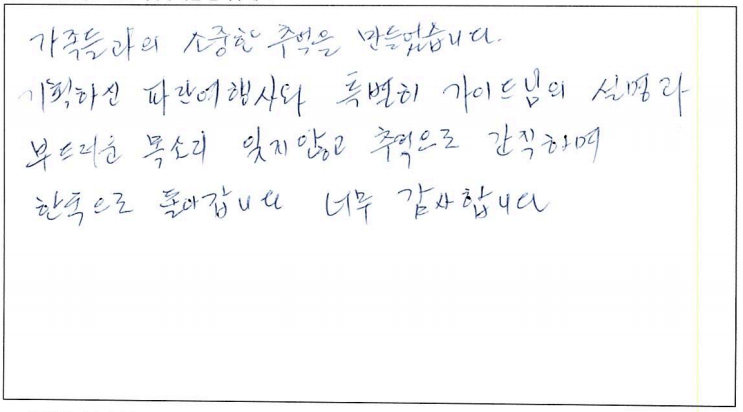 가족들과의 소중한 추억을 만들었습니다.
기획하신 파란여행사와 특별히 가이드님의 설명과
부드러운 목소리 잊지않고 추억으로 간직하며
한국으로 돌아갑니다 너무 감사합니다